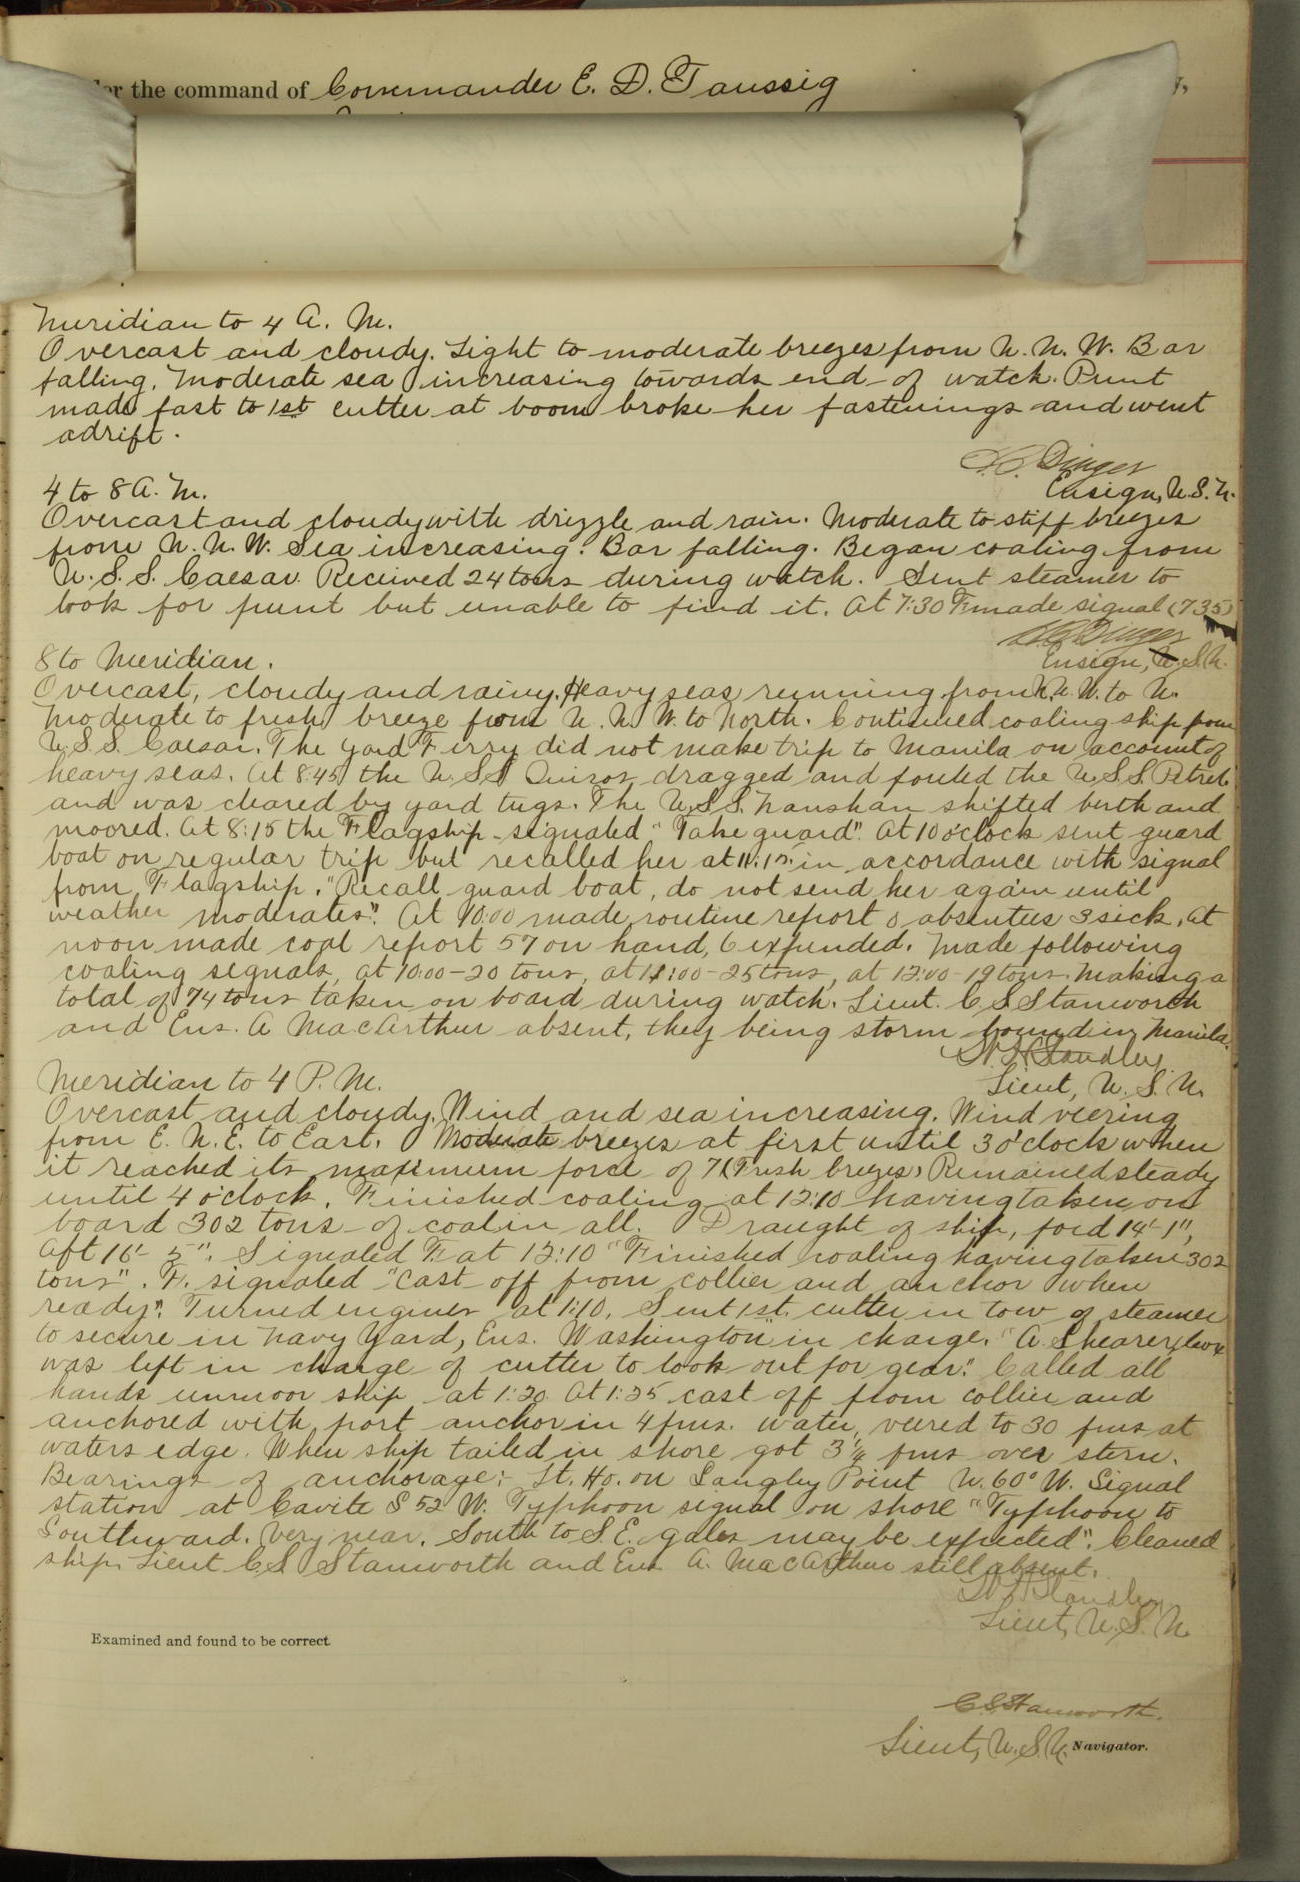 the command of Commander E. D. Taussig
Meridian to 4 A. M.
Overcast and cloudy. Light to moderate breezes from N. N. W. Bar
falling. Moderate sea increasing towards end of watch. Punt
made fast to 1st cutter at boom broke her fastenings and went
adrift.
Dinger
Ensign, U.S.N.
4 to 8 A. M.
Overcast and cloudy with drizzle and rain. Moderate to stiff breezes
from N. N. W. Sea increasing. Bar falling. Began coaling from
U. S. S. Caesar. Received 24 tons during watch. Sent steamer to
look for punt but unable to find it. At 7:30 F. made signal (735)
Dinger
Ensign, U.S.N.
8 to Meridian.
Overcast, cloudy and rainy. Heavy seas running from N.N.W. to N.
Moderate to fresh breeze from N. N. W. to North. Continued coaling ship from
U.S.S. Caesar. The yard Ferry did not make trip to Manila on account of
heavy seas. At 8:45 the U.S.S. Quiros dragged and fouled the U.S.S. Petrel
and was cleared by yard tugs. The U.S.S. Nanshan shifted berth and
moored. At 8:15 the Flagship signaled "Take guard". At 10 o'clock sent guard
boat on regular trip but recalled her at 11:15 in accordance with signal
from Flagship. "Recall guard boat, do not send her again until
weather moderates". At 10:00 made routine report 0 absentees 3 sick. At
noon made coal report 57 on hand, 6 expended. Made following
coaling signals, at 10:00-20 tons, at 11:00-25 tons, at 12:00-19 tons. Making a
total of 74 tons taken on board during watch. Lieut. C S Stanworth
and Ens. A MacArthur absent, they being storm bound in Manila.
W H Standley
Lieut, U. S. N.
Meridian to 4 P. M.
Overcast and cloudy. Wind and sea increasing. Wind veering
from E. N. E. to East. Moderate breezes at first until 3 o'clock when
it reached its maximum force of 7 (Fresh breezes) Remained steady
until 4 o'clock. Finished coaling at 12:10 having taken on
board 302 tons of coal in all. Draught of ship, for'd 14'-1",
Aft 16'-5". Signaled F. at 12:10 "Finished coaling having taken 302
tons". F. signaled "Cast off from collier and anchor when
ready". Turned engines at 1:10. Sent 1st. cutter in tow of steamer
to secure in Navy Yard, Ens. Washington in charge. "A. Shearer, (coxs
was left in charge of cutter to look out for gear." Called all
hands unmoor ship at 1:20. At 1:25 cast off from collier and
anchored with port anchor in 4 fms. water, veered to 30 fms at
waters edge. When ship tailed in shore got 3¼ fms over stern.
Bearings of anchorage:- Lt. Ho. on Sangley Point N. 60° W. Signal
station at Cavite S 52 W. Typhoon signal on shore "Typhoon to
Southward. Very near. South to S.E. gales may be expected". Cleaned
ship. Lieut C.S. Stanworth and Ens A. MacArthur still absent.
W H Standley
Lieut, U. S. N.
Examined and found to be correct.
C S Stanworth.
Lieut, U.S.N. Navigator.